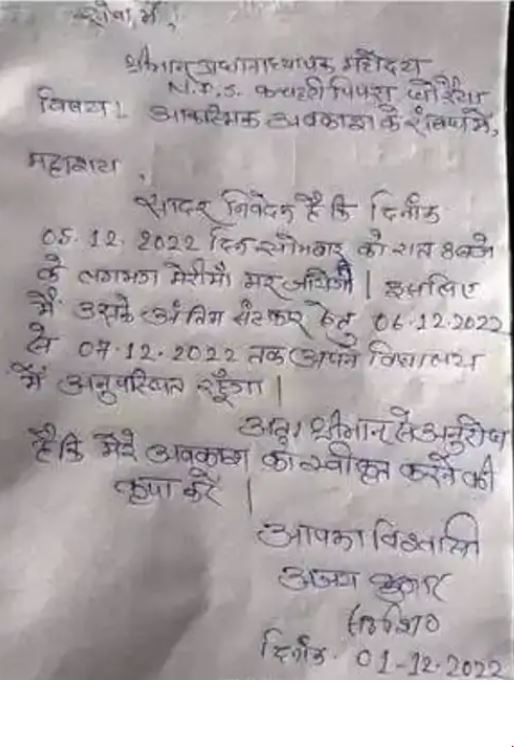 सेवा में,
श्रीमान प्रधानाध्यापक महोदय
N.P.S. कचहरी पिपरा
विषय:- आकस्मिक अवकाश के संबंध में,
महाशय,
सादर निवेदन है कि दिनांक
05.12.2022 दिन सोमवार को रात 8 बजे
के लगभग मेरी माँ मर जायेगी | इसलिए
मैं उसके अंतिम संस्कार हेतु 06.12.2022
से 07.12.2022 तक अपने विद्यालय
में अनुपस्थित रहूँगा |
अतः श्रीमान से अनुरोध
है कि मेरे अवकाश को स्वीकृत करने की
कृपा करें |
आपका विश्वासी
अजय कुमार
दिनांक. 01-12.2022